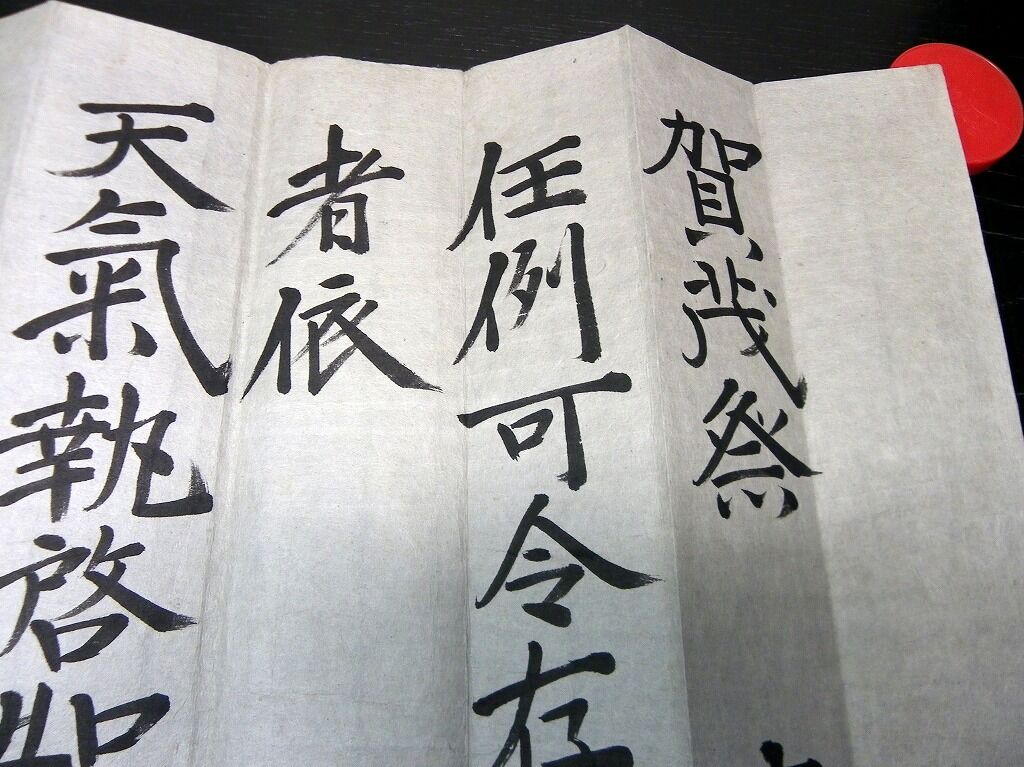 賀茂祭
任例可令存
者依
天氣執啓如